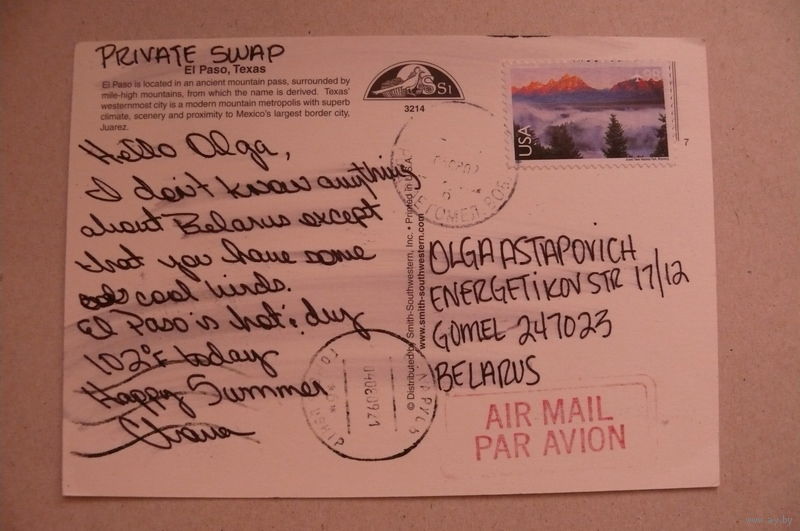 PRIVATE SWAP
El Paso, Texas
El Paso is located in an ancient mountain pass, surrounded by
mile-high mountains, from which the name is derived. Texas'
westernmost city is a modern mountain metropolis with superb
climate, scenery and proximity to Mexico's largest border city,
Juarez.
Hello Olga,
I don't know anything
about Belarus except
that you have some
cool birds.
El Paso is hot & dry
102°F today
Happy Summer
SSI
3214
© Distributed by Smith-Southwestern, Inc. • Printed in U.S.A.
www.smith-southwestern.com
USA
98
7
OLGA ASTAPOVICH
ENERGETIKOV STR 17/12
GOMEL 247023
BELARUS
AIR MAIL
PAR AVION